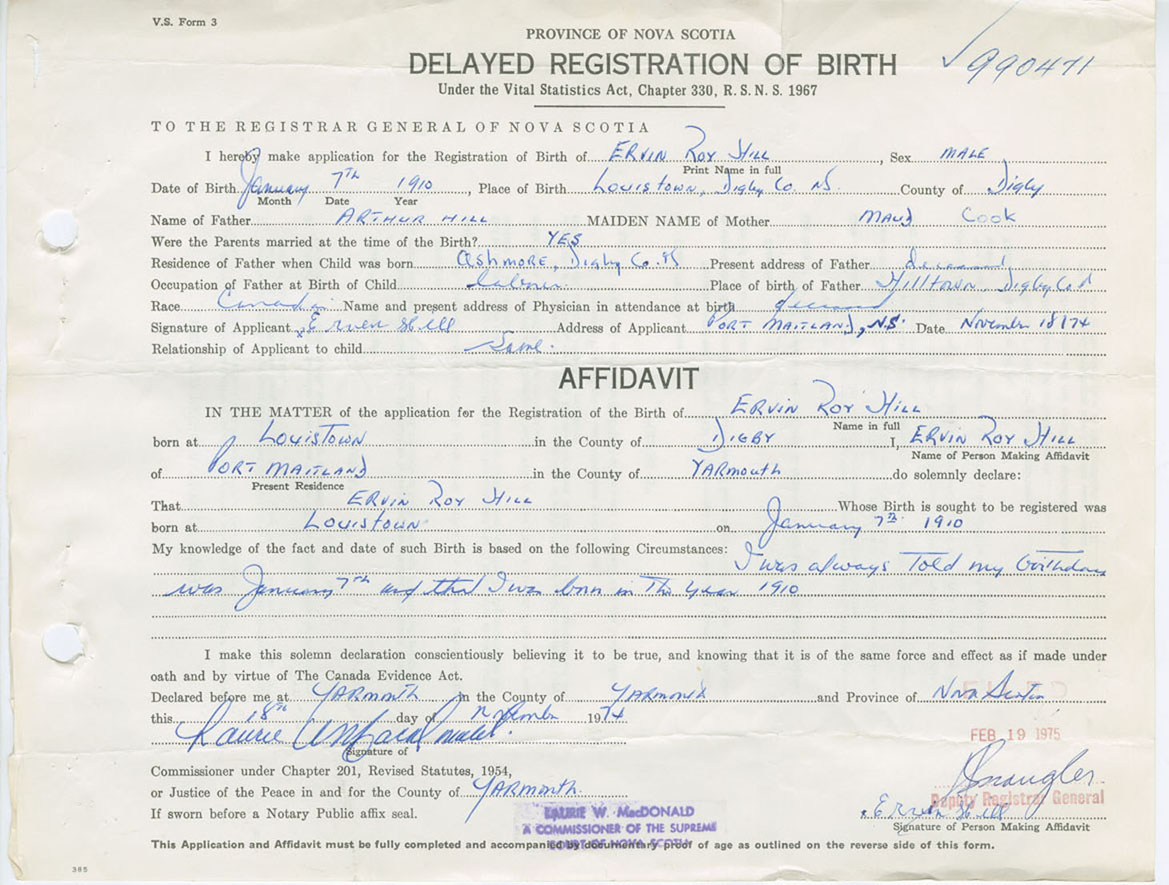 V.S. Form 3
PROVINCE OF NOVA SCOTIA
990471
DELAYED REGISTRATION OF BIRTH
Under the Vital Statistics Act, Chapter 330, R. S. N. S. 1967
TO THE REGISTRAR GENERAL OF NOVA SCOTIA
I hereby make application for the Registration of Birth of ERVIN ROY HILL, Sex MALE
Print Name in full
Date of Birth January 7TH 1910, Place of Birth Louistown, Digby Co. NS. County of Digby
Month Date Year
Name of Father ARTHUR HILL MAIDEN NAME of Mother MAUD COOK
Were the Parents married at the time of the Birth? YES
Residence of Father when Child was born ASHMORE, Digby Co. NS Present address of Father deceased
Occupation of Father at Birth of Child Laborer. Place of birth of Father Hilltown, Digby Co.
Race Canadian Name and present address of Physician in attendance at birth deceased
Signature of Applicant x Erven Hill Address of Applicant PORT MAITLAND, NS. Date November 18/74
Relationship of Applicant to child Same.
AFFIDAVIT
IN THE MATTER of the application for the Registration of the Birth of ERVIN ROY HILL
Name in full
born at LOUISTOWN in the County of DIGBY I, ERVIN ROY HILL
Name of Person Making Affidavit
of PORT MAITLAND in the County of YARMOUTH do solemnly declare:
Present Residence
That ERVIN ROY HILL Whose Birth is sought to be registered was
born at LOUISTOWN on January 7th 1910
My knowledge of the fact and date of such Birth is based on the following Circumstances: I was always Told my birthday
was January 7TH and that I was born in The year 1910
I make this solemn declaration conscientiously believing it to be true, and knowing that it is of the same force and effect as if made under
oath and by virtue of The Canada Evidence Act.
Declared before me at YARMOUTH in the County of YARMOUTH and Province of Nova Scotia
this 18th day of November 1974
FEB 19 1975
Laurie W MacDonald
Signature of
Commissioner under Chapter 201, Revised Statutes, 1954,
or Justice of the Peace in and for the County of YARMOUTH.
Deputy Registrar General
If sworn before a Notary Public affix seal.
LAURIE W. MacDONALD
A COMMISSIONER OF THE SUPREME
COURT OF NOVA SCOTIA
Erven Hill
Signature of Person Making Affidavit
This Application and Affidavit must be fully completed and accompanied by documentary proof of age as outlined on the reverse side of this form.
385